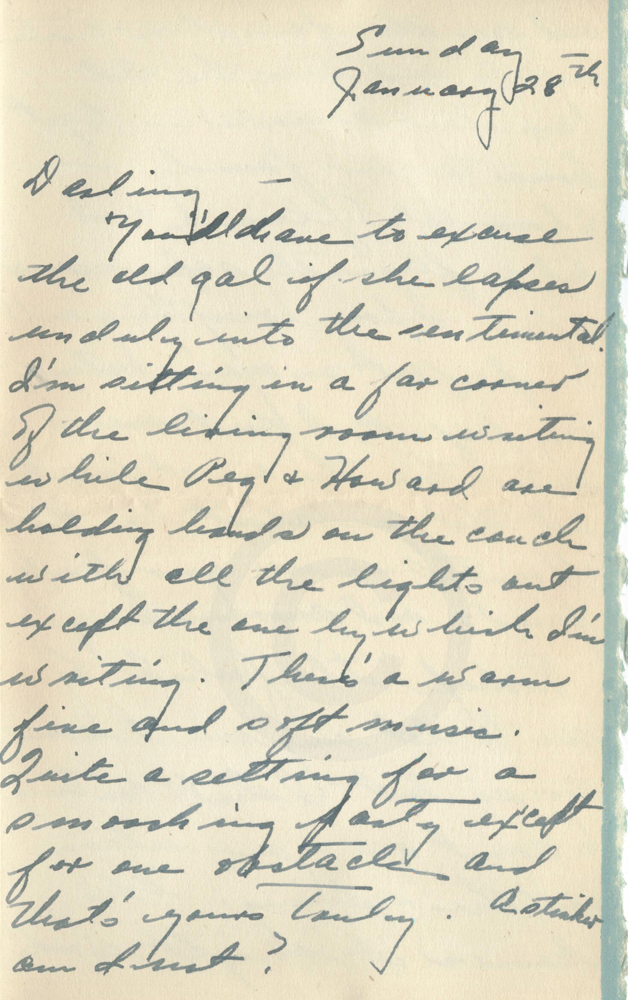 Sunday
January 28th
Darling –
You'll have to excuse
the old gal if she lapses
unduly into the sentimental.
I'm sitting in a far corner
of the living room writing
while Peg & Howard are
holding hands on the couch
with all the lights out
except the one by which I'm
writing. There's a warm
fire and soft music.
Quite a setting for a
smooching party except
for one obstacle and
that's yours truly. A stinker
am I not?